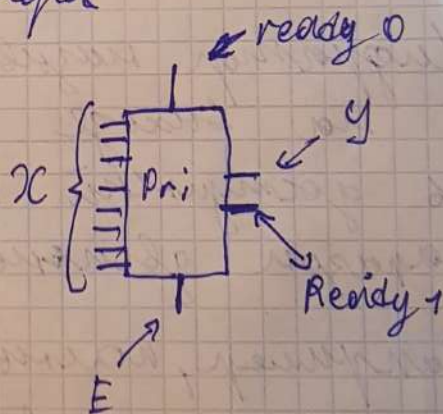 ready 0
y
X
Pri
Ready 1
E